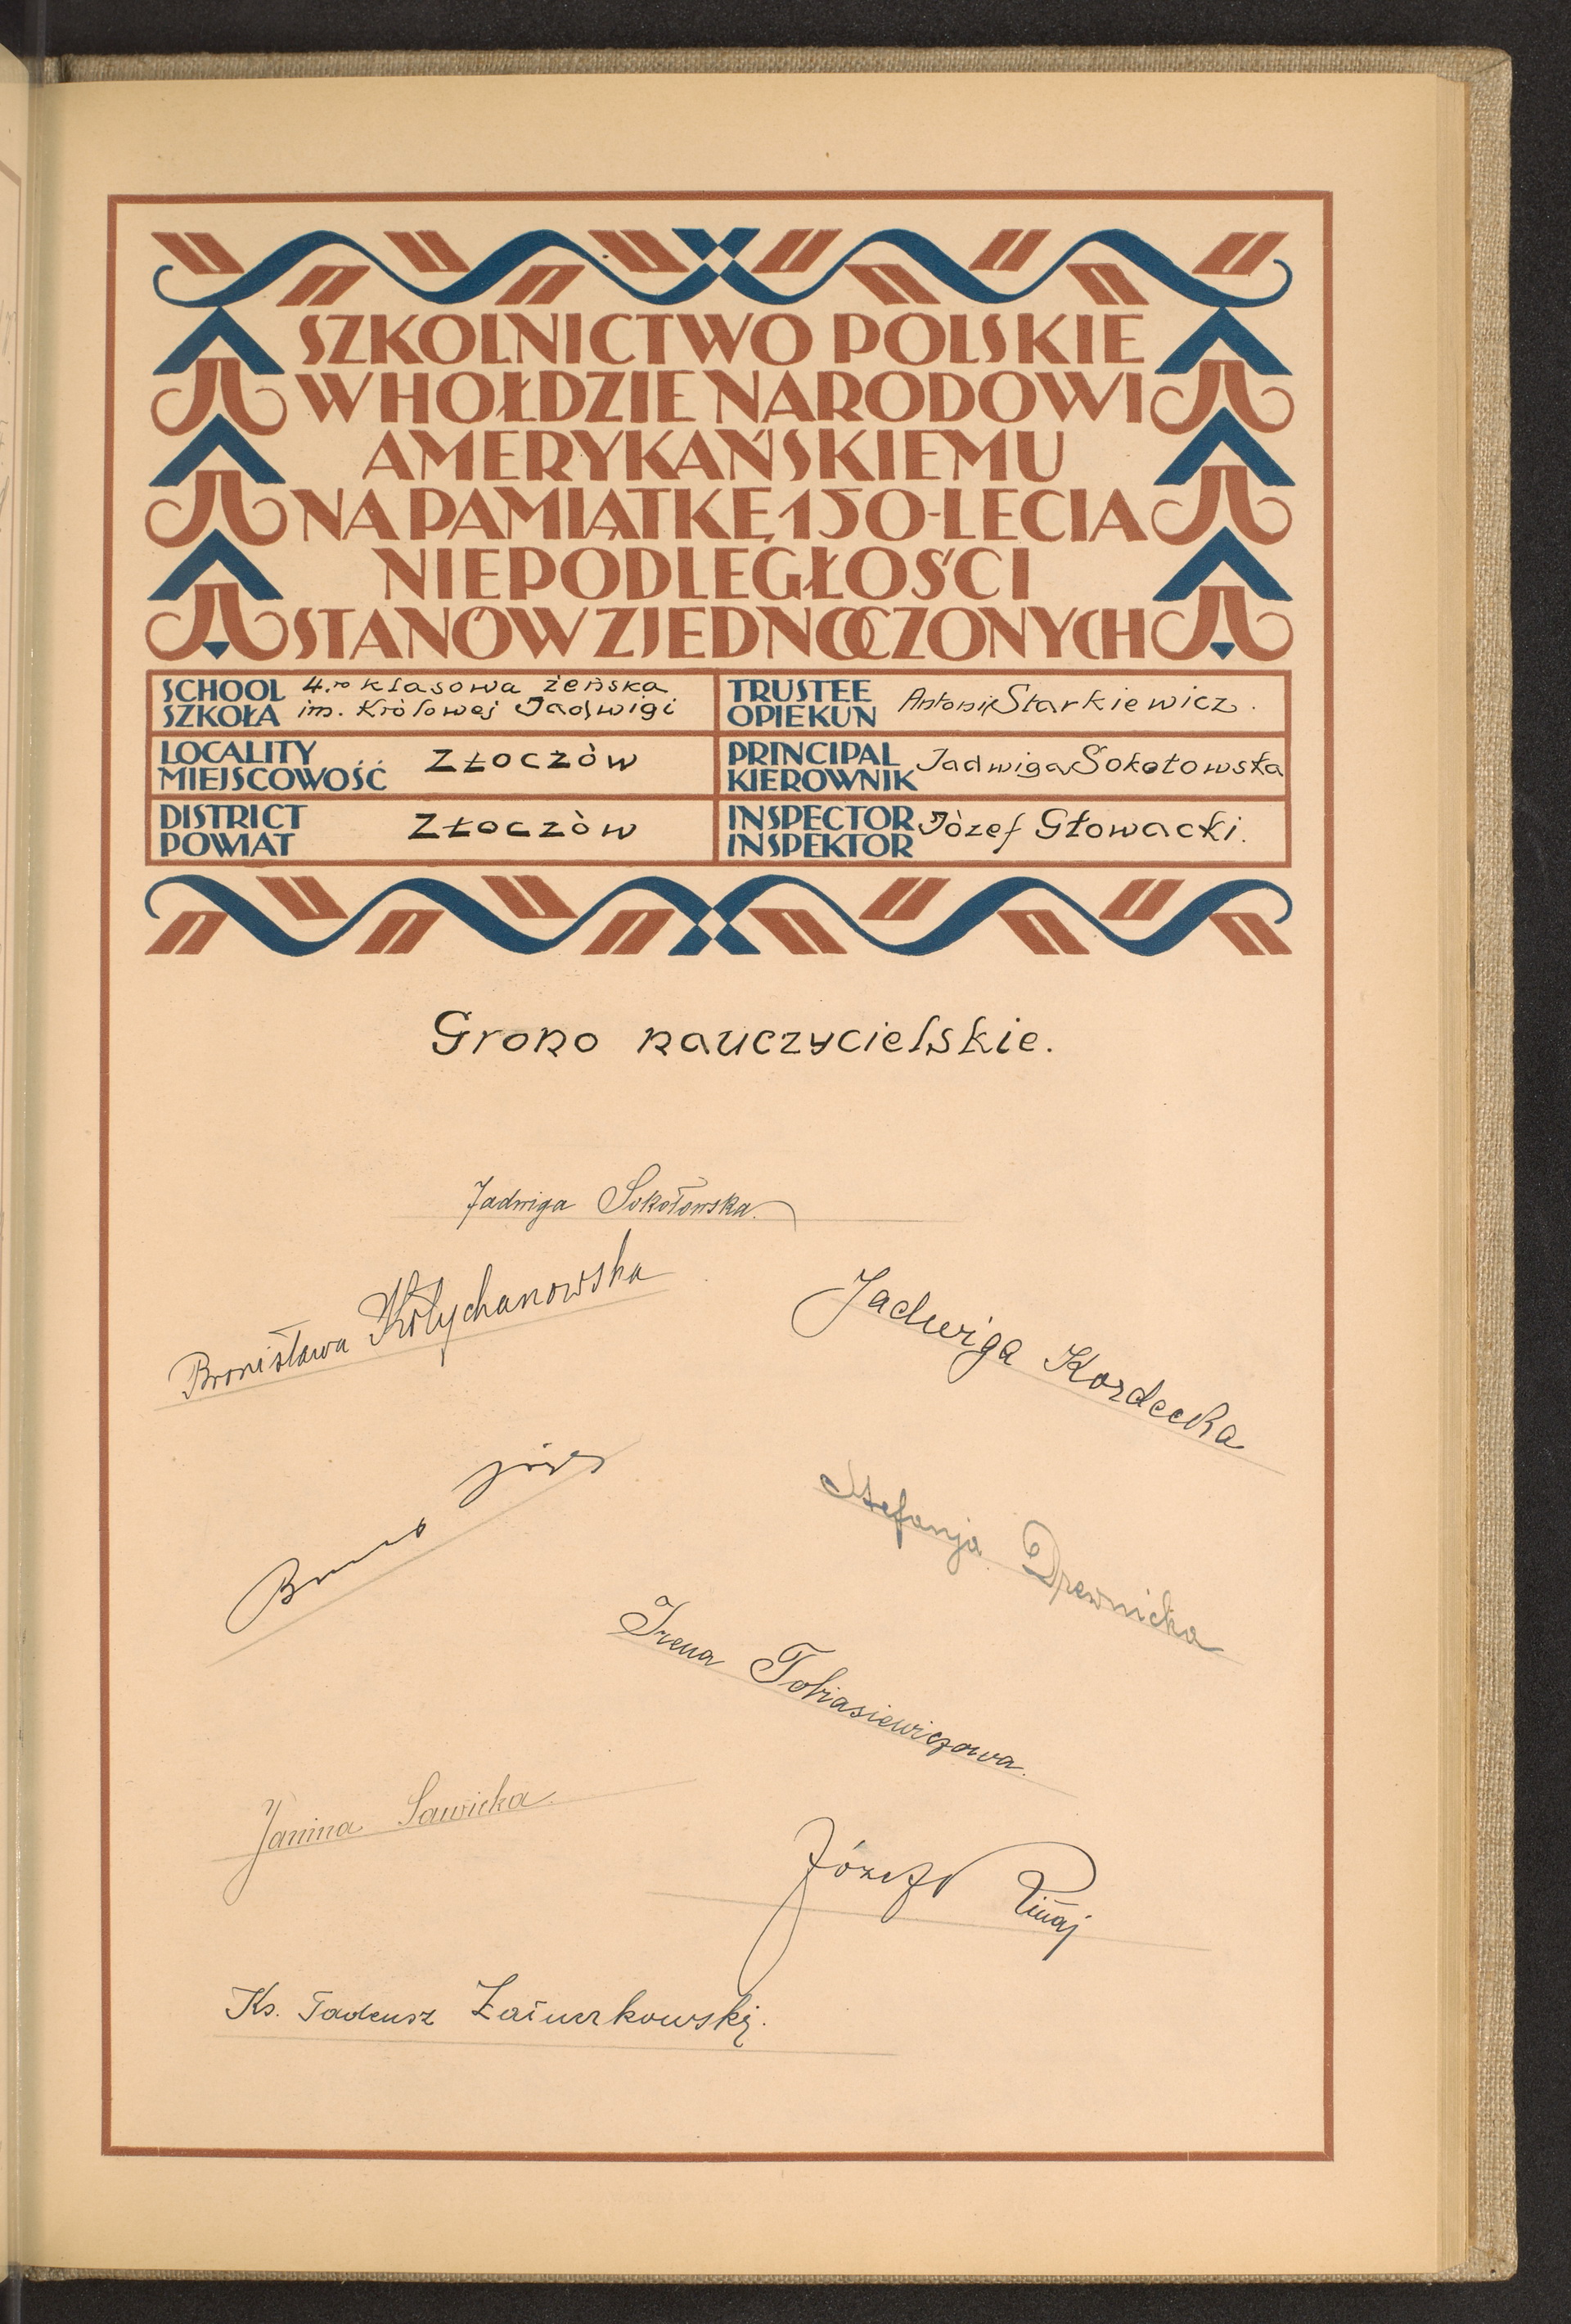 SZKOLNICTWO POLSKIE
W HOŁDZIE NARODOWI
AMERYKAŃSKIEMU
NA PAMIĄTKĘ 150-LECIA
NIEPODLEGŁOŚCI
STANÓW ZJEDNOCZONYCH
SCHOOL
SZKOŁA
4.ro klasowa żeńska
im. Królowej Jadwigi
TRUSTEE
OPIEKUN
Antoni Starkiewicz.
LOCALITY
MIEJSCOWOŚĆ
Złoczów
PRINCIPAL
KIEROWNIK
Jadwiga Sokołowska
DISTRICT
POWIAT
Złoczów
INSPECTOR
INSPEKTOR
Józef Głowacki.
Grono nauczycielskie.
Jadwiga Sokołowska.
Bronisława Kołychanowska
Jadwiga Kordecka
Stefanja Drewnicka
Irena Tobiasiewiczowa.
Janina Sawicka.
Józef
Ks. Tadeusz